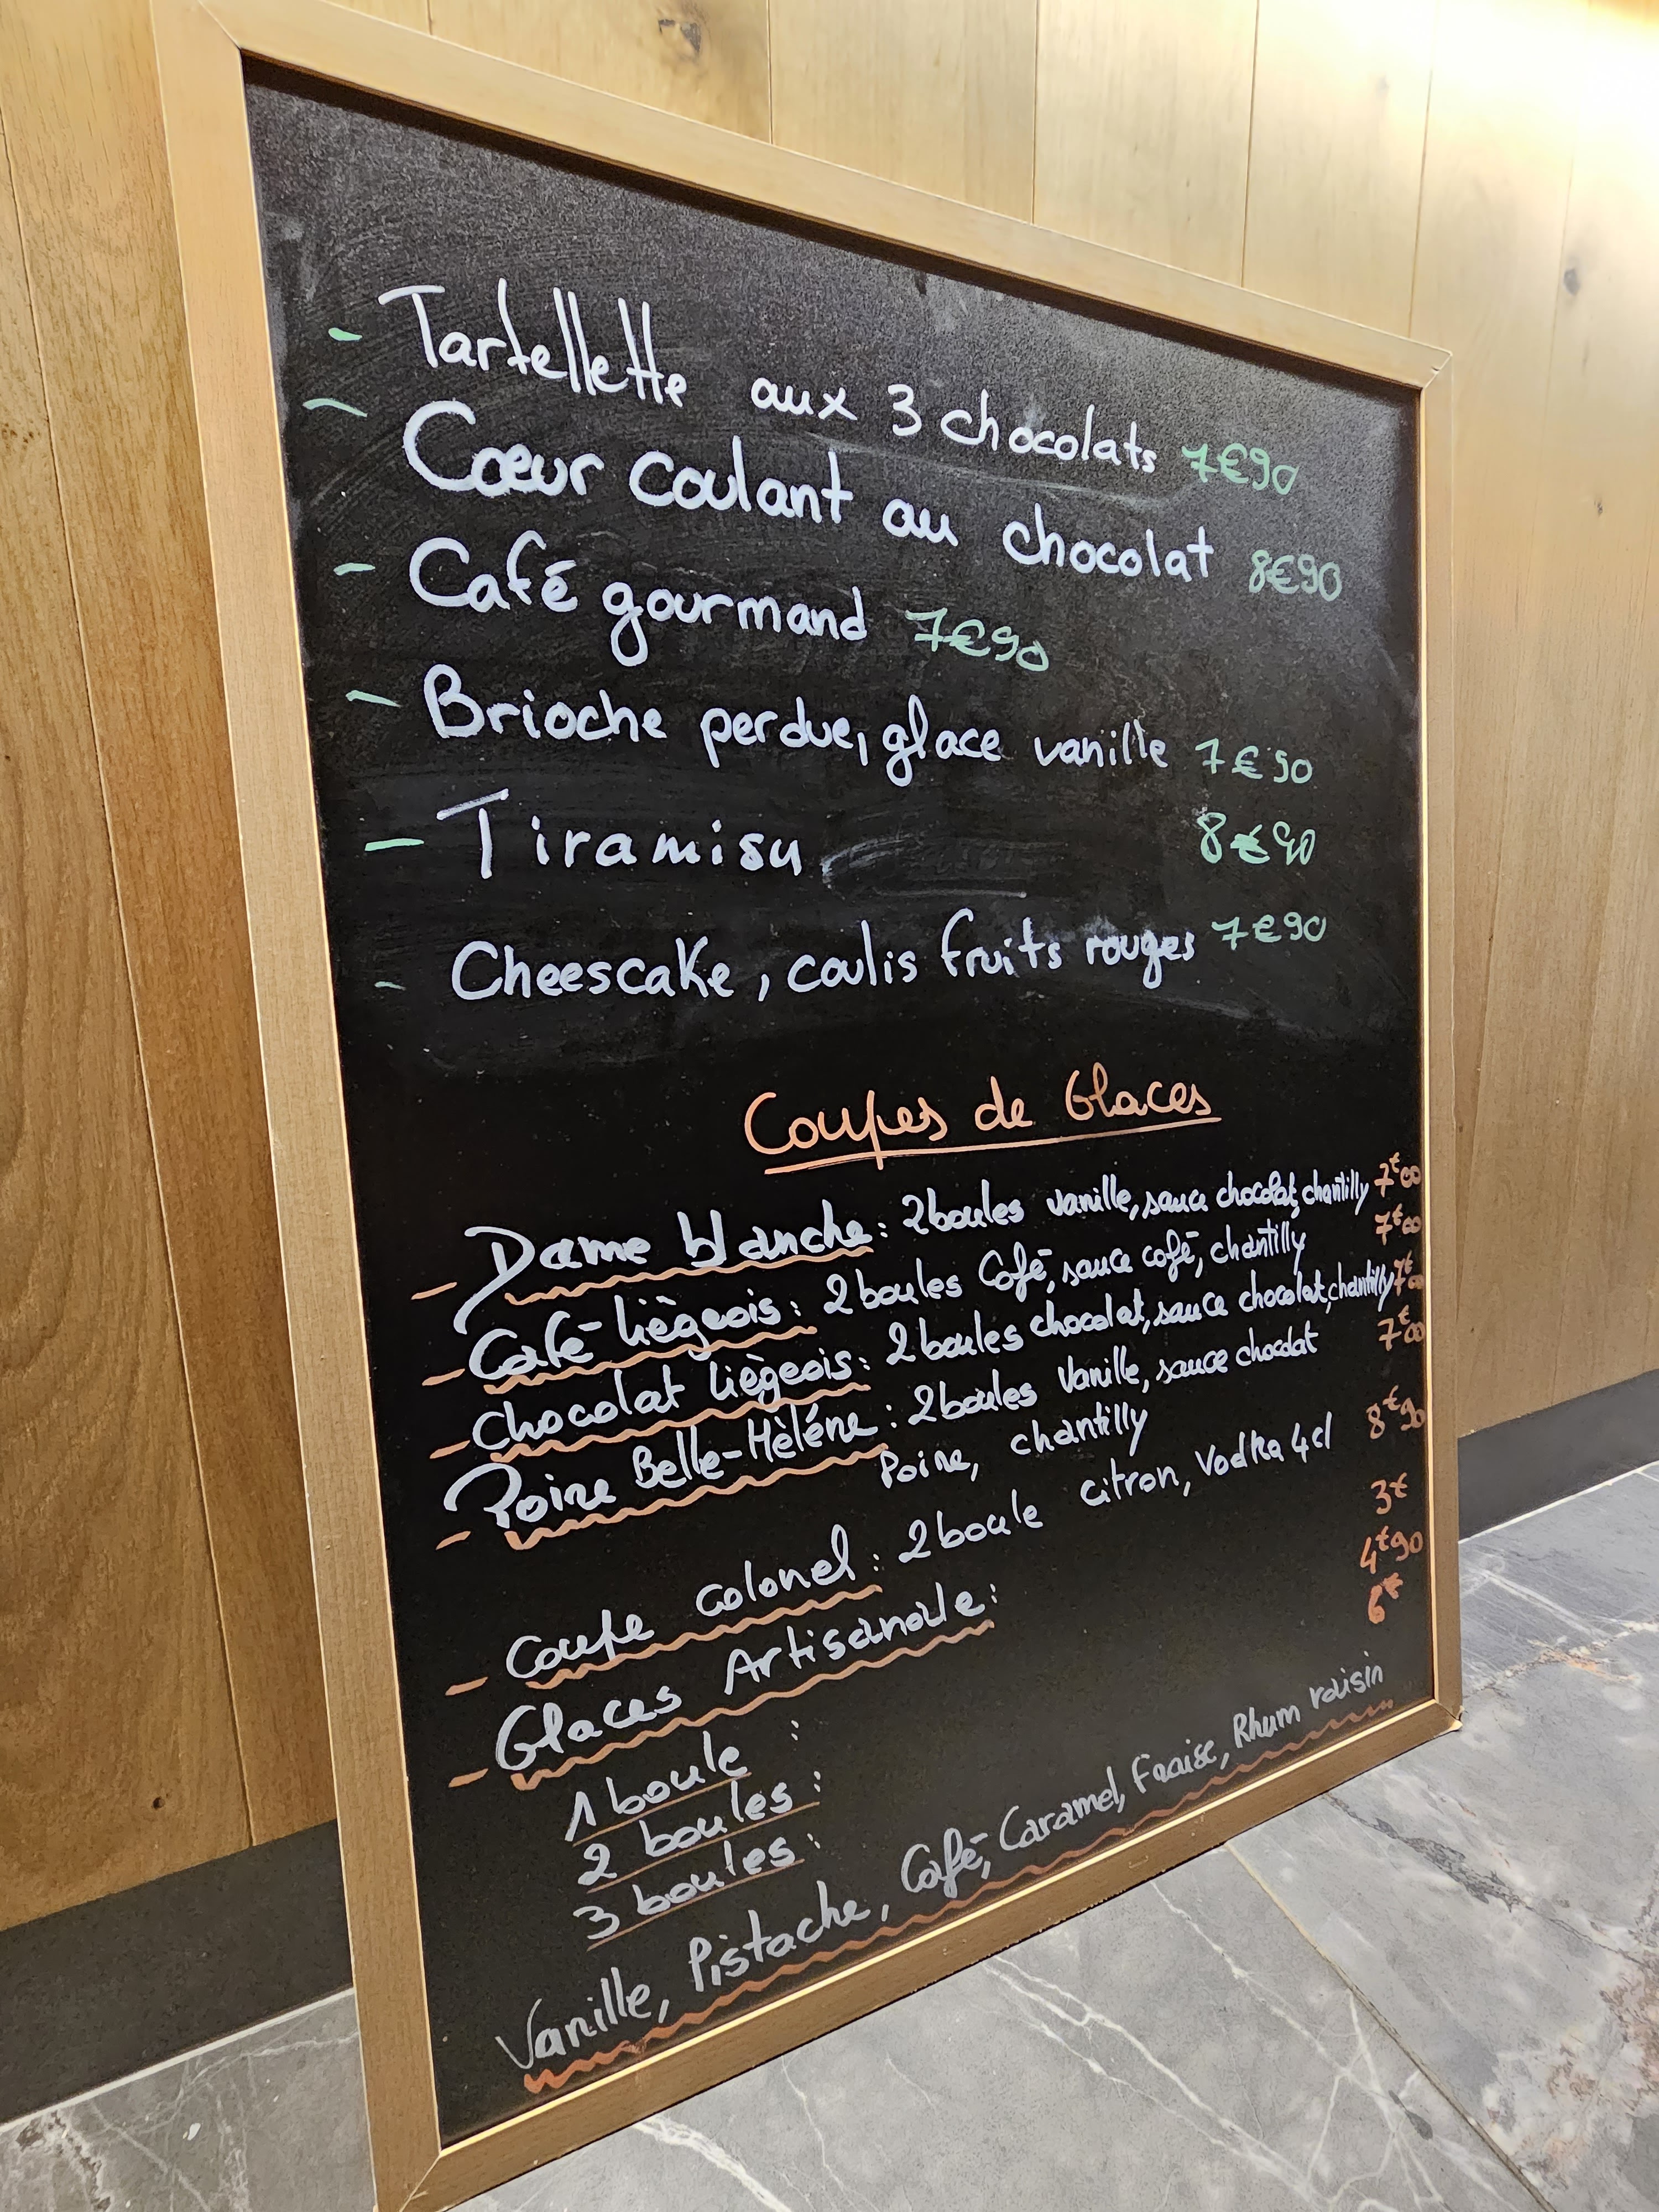 - Tartellette aux 3 chocolats 7€90
- Cœur coulant au chocolat 8€90
- Café gourmand 7€90
- Brioche perdue, glace vanille 7€90
- Tiramisu 8€90
- Cheescake, coulis fruits rouges 7€90
Coupes de Glaces
- Dame blanche : 2 boules vanille, sauce chocolat, chantilly 7€00
- Café liègeois : 2 boules Café, sauce café, chantilly 7€00
- Chocolat liègeois : 2 boules chocolat, sauce chocolat, chantilly 7€00
- Poire Belle-Hèléne : 2 boules Vanille, sauce chocolat 7€00
Poire, chantilly
- Coupe colonel : 2 boule citron, Vodka 4cl 8€90
- Glaces Artisanale :
1 boule : 3€
2 boules : 4€90
3 boules : 6€
Vanille, Pistache, Café, Caramel, Fraise, Rhum raisin